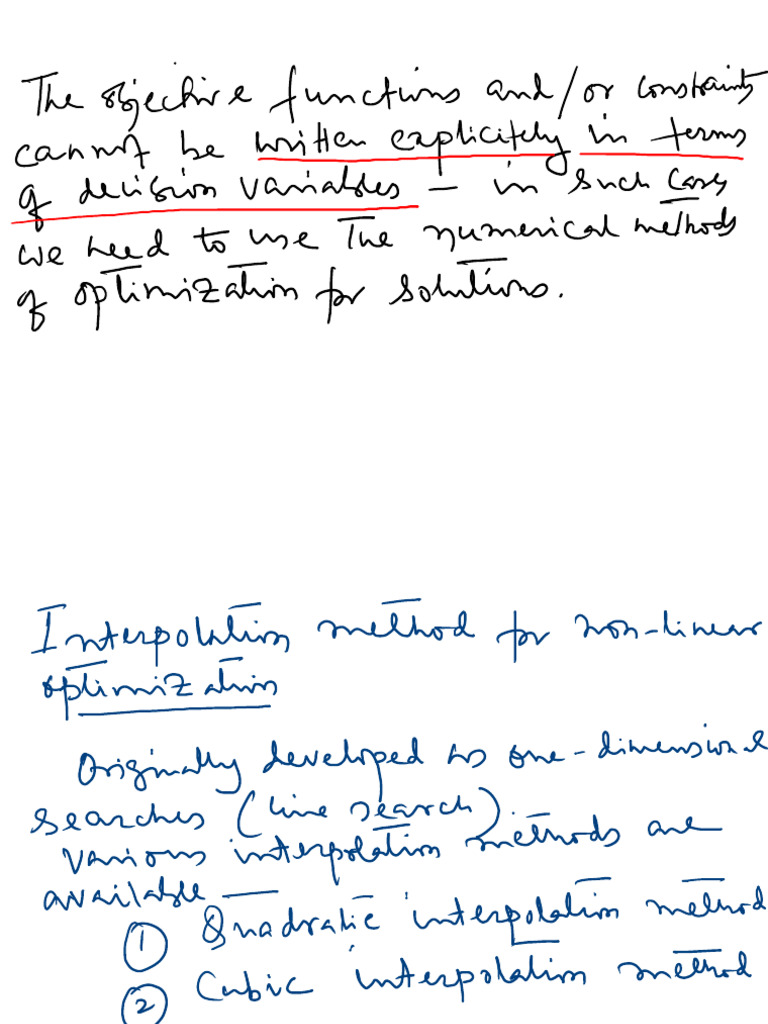 The objective functions and/or constraints
cannot be written explicitely in terms
of decision variables – in such cases
we need to use the numerical methods
of optimization for solutions.
Interpolation method for non-linear
optimization
Originally developed as one-dimensional
searches (line search)
Various interpolation methods are
available —
① Quadratic interpolation method
② Cubic interpolation method